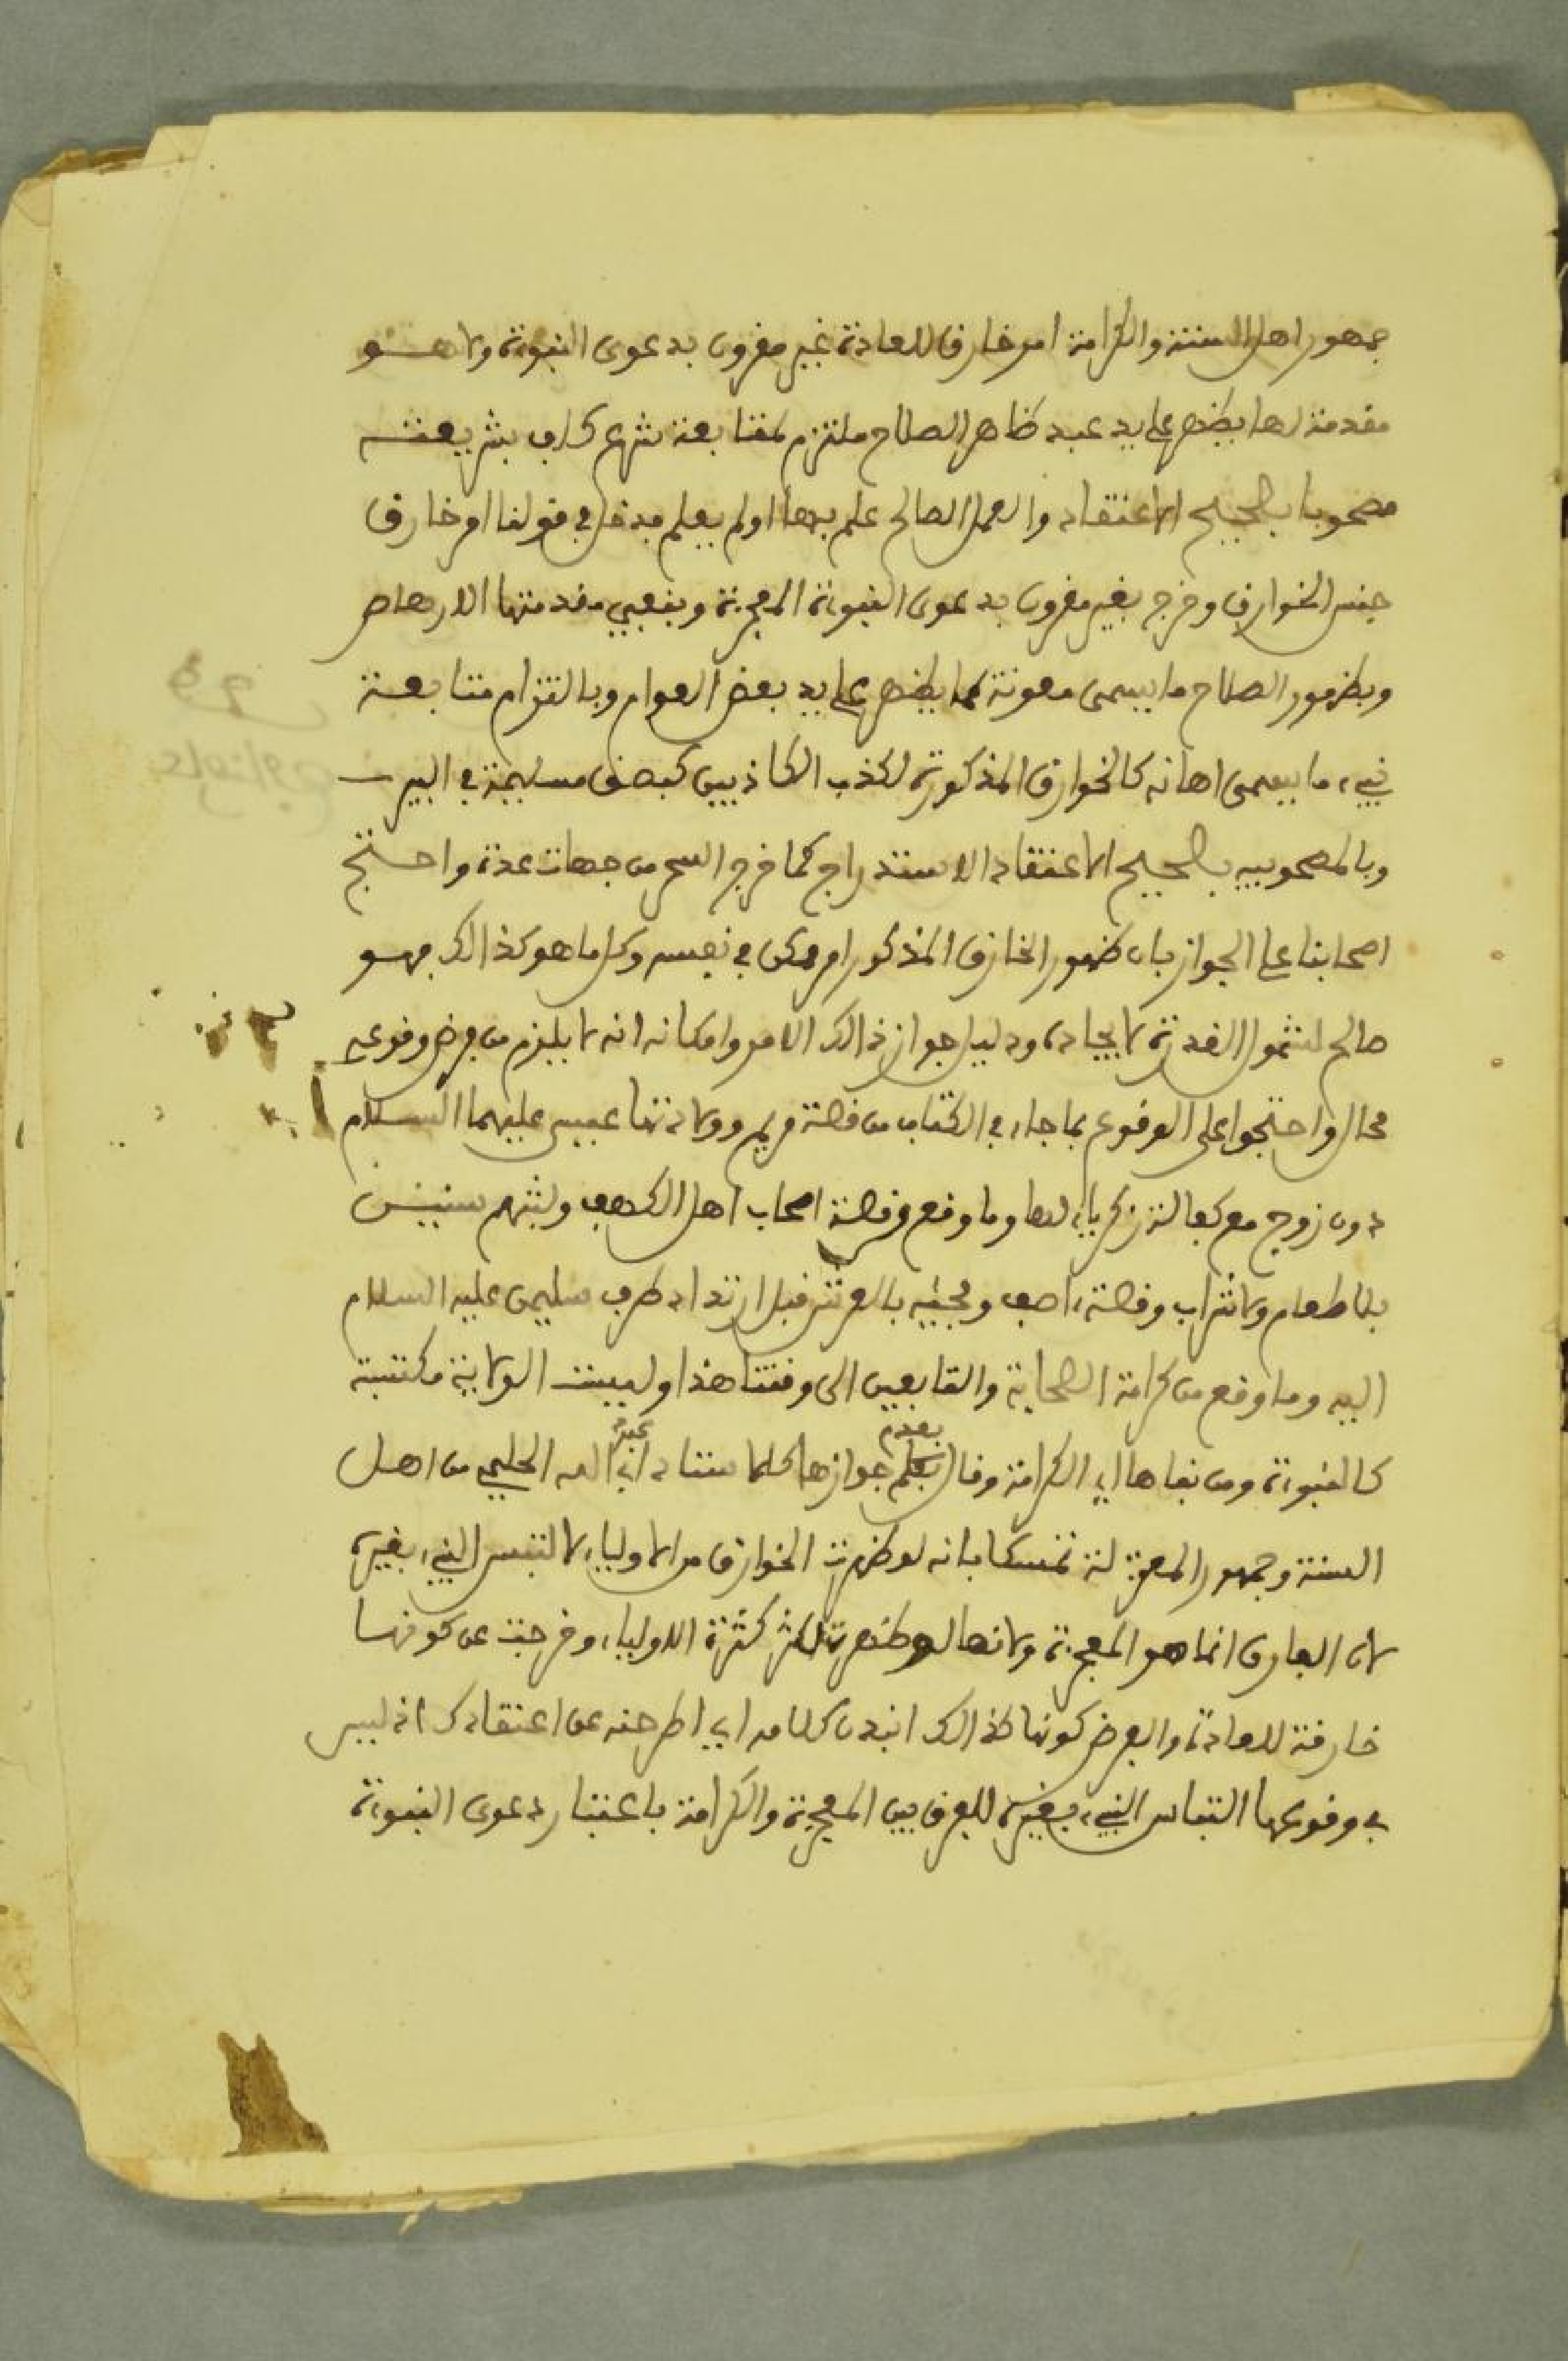 جمهور اهل السنة والكرامة امر خارق للعادة غير مقرون بدعوى النبوة ولا هو
مقدمة لها يظهر على يد عبد ظاهر الصلاح ملتزم لمتابعة شرع كلف بشريعته
مصحوبا بصحيح الاعتقاد والعمل الصالح علم بها او لم يعلم فدخل في قولنا امر خارق
جنس الخوارق وخرج بغير مقرون بدعوى النبوة المعجزة وبنفي مقدمتها الارهاص
وبظهور الصلاح ما يسمى معونة كما يظهر على يد بعض العوام وبالتزام متابعة
نبيء ما يسمى اهانه كالخوارق المذكورة لكذب الكاذبين كبصق مسليمة في البير
وبالمصحوبيه بصحيح الاعتقاد الاستدراج كما خرج السحر من جهات عدة واحتج
اصحابنا على الجواز بان ظهور الخارق المذكور امر ممكن في نفسه وكل ما هو كذالك فهو
صالح لشمول القدرة لايجاده ودليل جواز ذالك الامر وامكانه انه لا يلزم من فرض وقوعه
محال واحتجوا على الوقوع بما جاء في الكتاب من قصة مريم وولادتها عيسى عليهما السلام
دون زوج مع كفالة زكرياء لها وما وقع وقصة اصحاب اهل الكهف ولبثهم سنين
بلا طعام ولا شراب وقصة ءاصف ومجيئه بالعرش قبل ارتداد طرف سليمن عليه السلام
اليه وما وقع من كرامة الصحابة والتابعين الى وقتنا هذا وليست الولاية مكتسبة
كالنبوة ومن نفاها اي الكرامة وقال بعدم جوازها كالاستاذ ابي عبد الله الحليمي من اهل
السنة وجمهور المعتزلة تمسكا بانه لو ظهرت الخوارق من الاولياء لالتبس النبيء بغيره
لان الفارق انما هو المعجزة ولانها لو ظهرت لكثرت كثرة الاولياء وخرجت عن كونها
خارقة للعادة والفرض كونها كذالك انبذن كلامه اي اطرحنه عن اعتقادك اذ ليس
في وقوعها التباس النبيء بغيره للفرق بين المعجزة والكرامة باعتبار دعوى النبوة